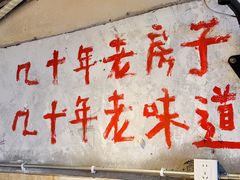 几十年老房子
几十年老味道